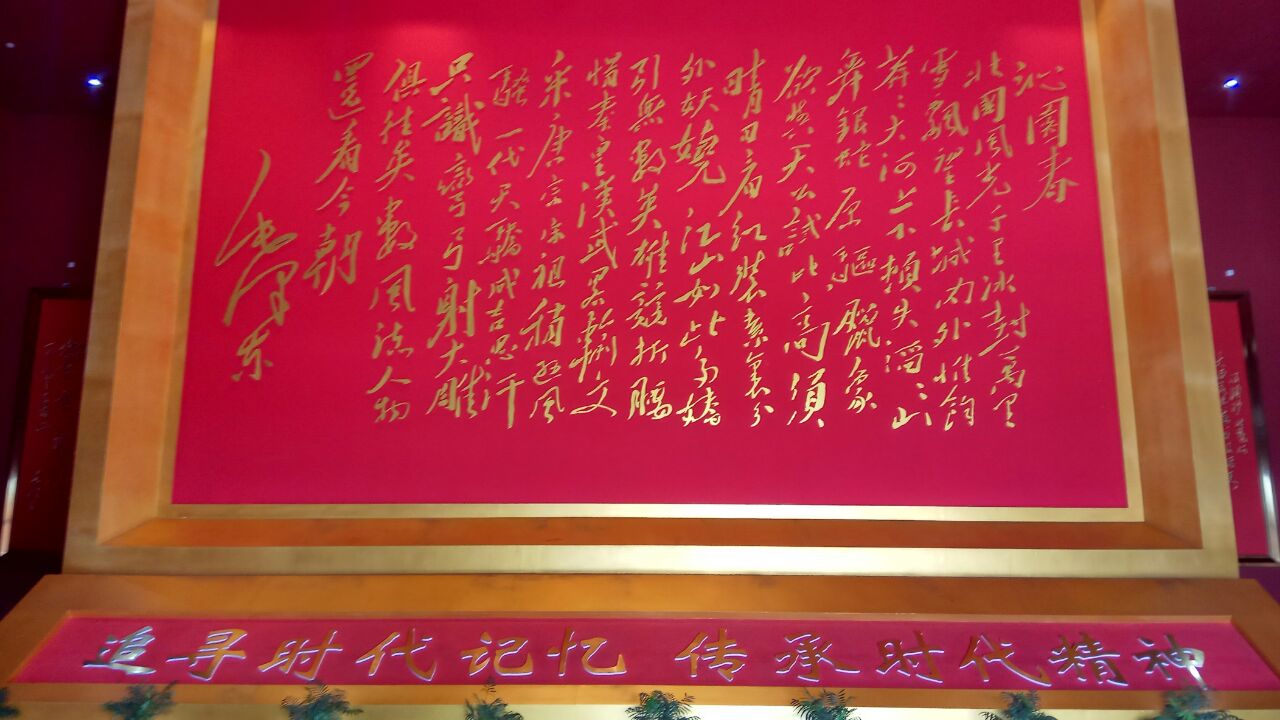 沁園春
北國風光千里冰封萬里
雪飄望長城内外惟餘
莽〻大河上下頓失滔〻山
舞銀蛇原驅臘象
欲與天公試比高須
晴日看紅裝素裹分
外妖嬈江山如此多嬌
引無數英雄競折腰
惜秦皇漢武畧輸文
采唐宗宋祖稍遜風
騷一代天驕成吉思汗
只識彎弓射大雕
俱往矣數風流人物
還看今朝
毛澤东
追寻时代记忆 传承时代精神